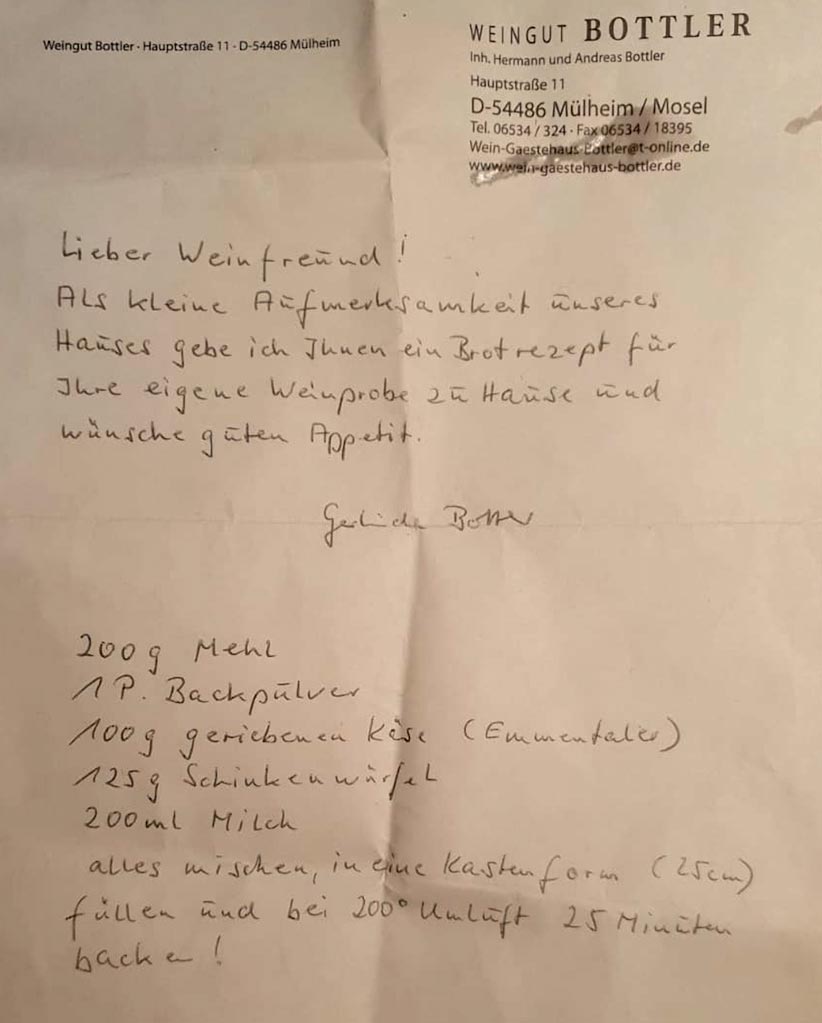 Weingut Bottler · Hauptstraße 11 · D-54486 Mülheim
WEINGUT BOTTLER
Inh. Hermann und Andreas Bottler
Hauptstraße 11
D-54486 Mülheim / Mosel
Tel. 06534 / 324 · Fax 06534 / 18395
Wein-Gaestehaus-Bottler@t-online.de
www.wein-gaestehaus-bottler.de
Lieber Weinfreund!
Als kleine Aufmerksamkeit unseres
Hauses gebe ich Ihnen ein Brotrezept für
Ihre eigene Weinprobe zu Hause und
wünsche guten Appetit.
Bottler
200g Mehl
1 P. Backpulver
100g geriebenen Käse (Emmentaler)
125g Schinkenwürfel
200ml Milch
alles mischen, in eine Kastenform (25cm)
füllen und bei 200° Umluft 25 Minuten
backen!